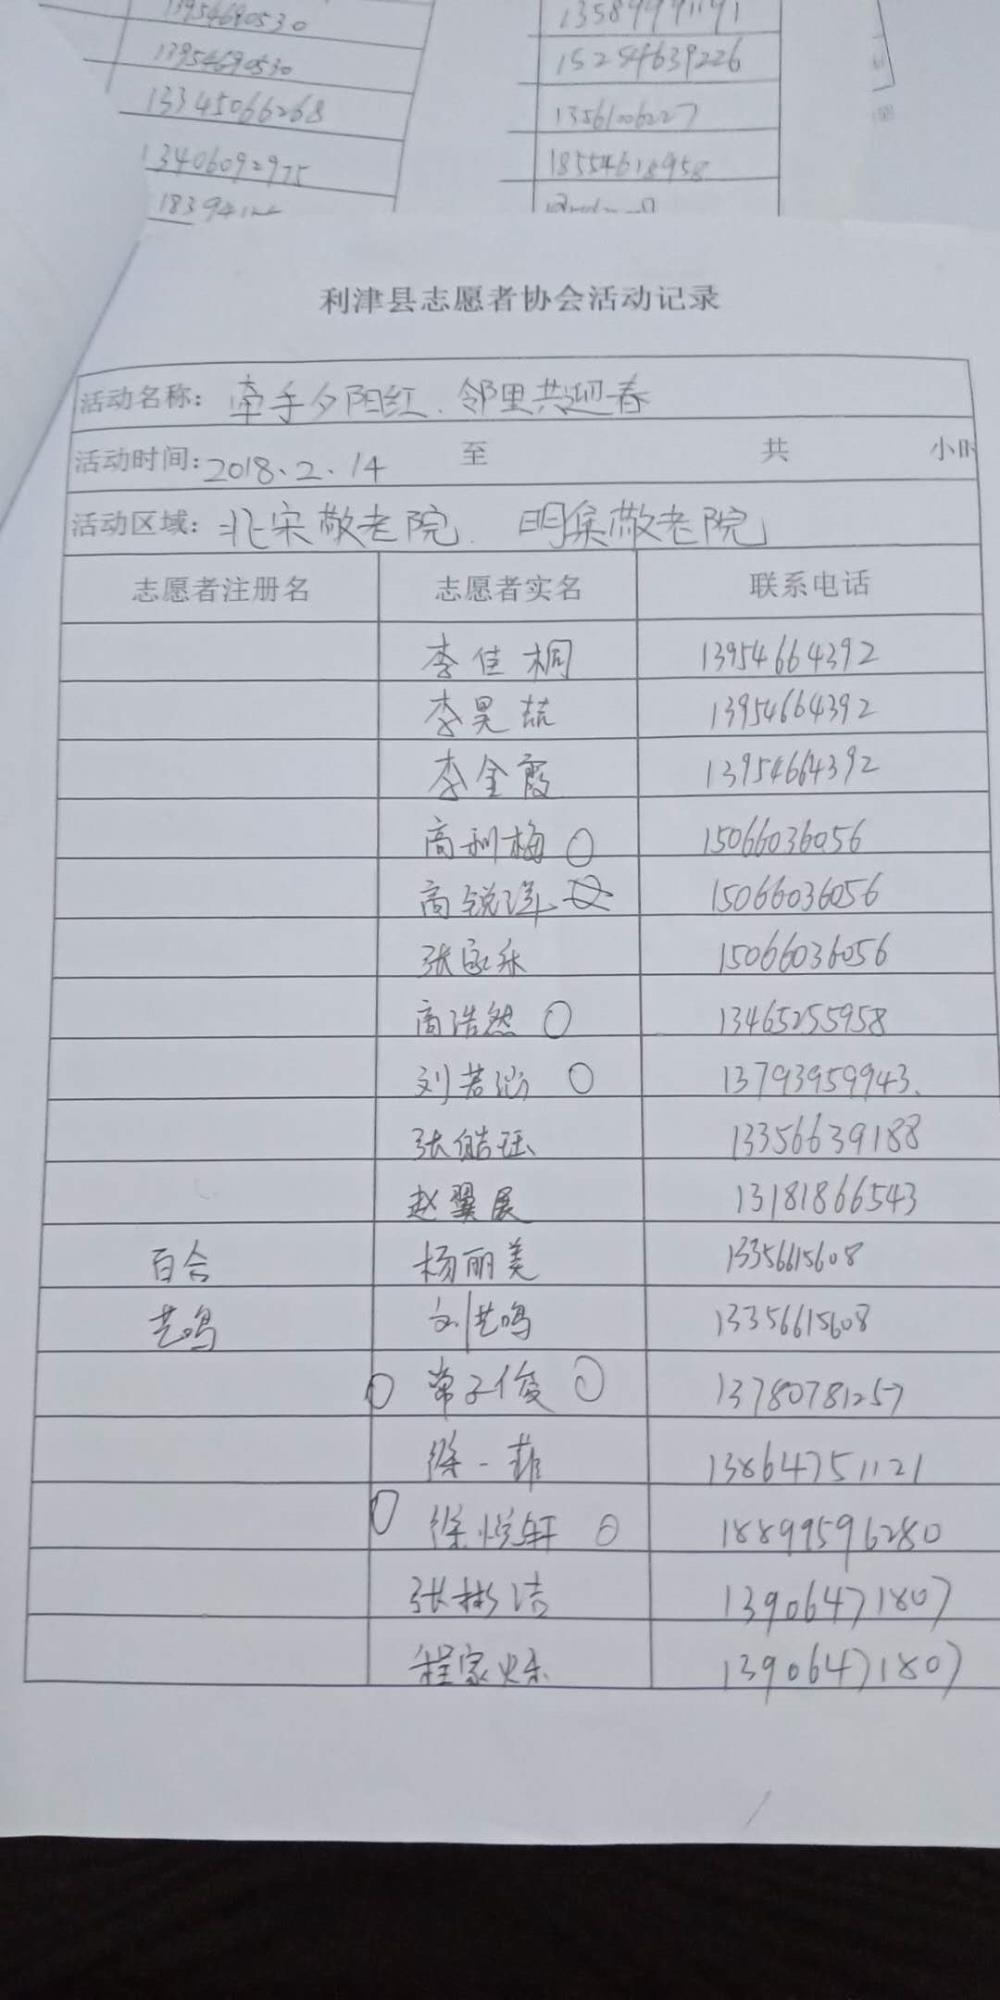 13954690530
13589991191
13954690530
15254639226
13345066268
13561006227
13406092975
18554618958
利津县志愿者协会活动记录
活动名称: 牵手夕阳红、邻里共迎春
活动时间: 2018.2.14 至 共 小时
活动区域: 北宋敬老院、明集敬老院
志愿者注册名 志愿者实名 联系电话
李佳桐 13954664392
李昊喆 13954664392
李金霞 13954664392
高利梅 15066036056
高锐泽 15066036056
张家乐 15066036056
高浩然 13465255958
刘若涵 13793959943.
张皓珏 13356639188
赵翼展 13181866543
百合 杨丽美 13356615608
艺鸣 刘艺鸣 13356615608
常子俊 13780781257
徐一菲 13864751121
徐悦轩 18899596280
张彬洁 13906471807
程家烁 13906471807